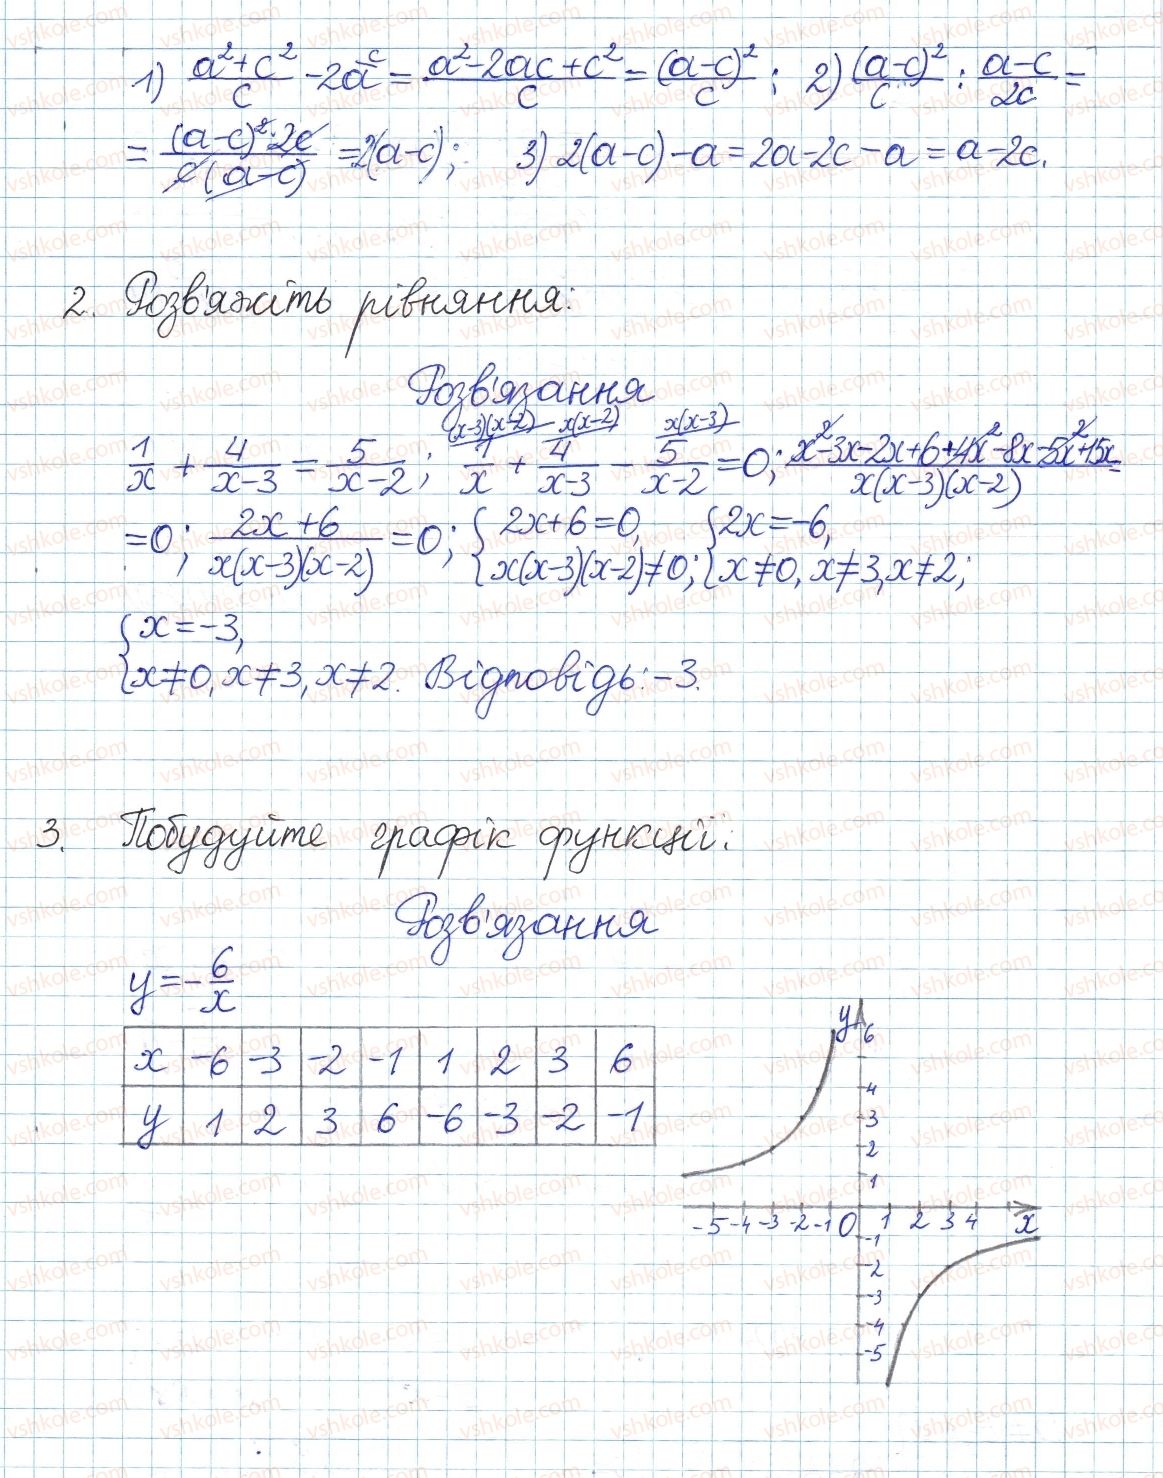 1) (a²+c²)/c - 2a^c = (a²-2ac+c²)/c = (a-c)²/c ; 2) (a-c)²/c : (a-c)/2c =
= (a-c)²·2c/c(a-c) = 2(a-c); 3) 2(a-c)-a=2a-2c-a=a-2c.
2. Розв'яжіть рівняння:
Розв'язання
1/x + 4/(x-3) = 5/(x-2); (x-3)(x-2) 1/x + x(x-2) 4/(x-3) - x(x-3) 5/(x-2) =0; (x²-3x-2x+6+4x²-8x-5x²+15x)/x(x-3)(x-2) =
=0; (2x+6)/x(x-3)(x-2) =0; { 2x+6=0, x(x-3)(x-2)≠0; { 2x=-6, x≠0, x≠3, x≠2;
{ x=-3,
x≠0, x≠3, x≠2. Відповідь: -3.
3. Побудуйте графік функції:
Розв'язання
y=-6/x
x -6 -3 -2 -1 1 2 3 6
y 1 2 3 6 -6 -3 -2 -1
y 6
4
3
2
1
-5 -4 -3 -2 -1 0 1 2 3 4 x
-1
-2
-3
-4
-5
vshkole.com